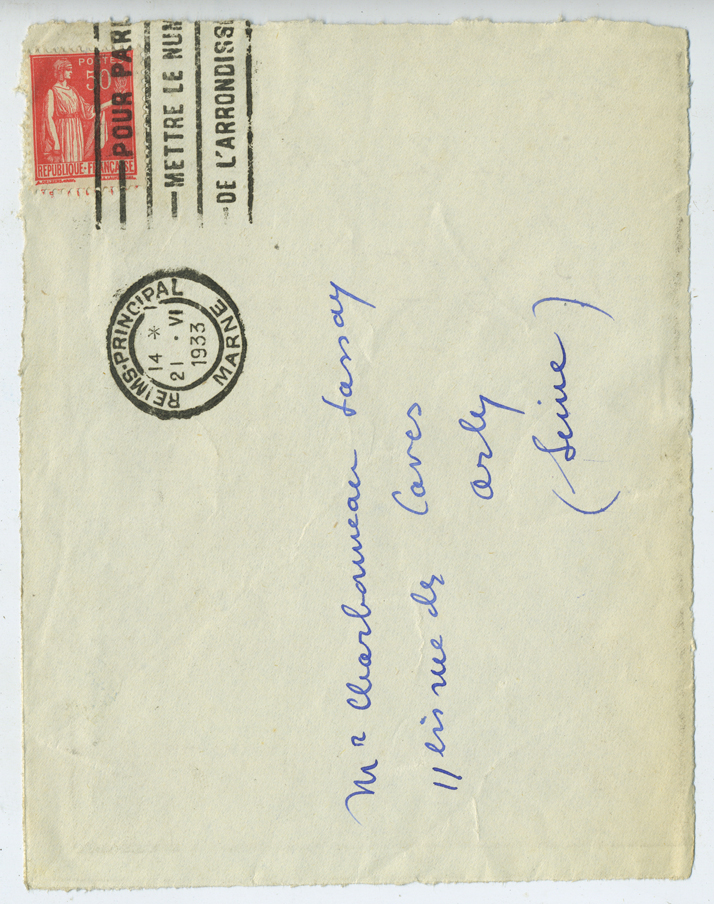 POSTES
50
REPUBLIQUE-FRANCAISE
POUR PARI
METTRE LE NUM
DE L'ARRONDISSE
REIMS-PRINCIPAL
14 *
21 . VI
1933
MARNE
Mr Charbonneau Lassay
11 bis rue des Caves
Orly
(Seine)